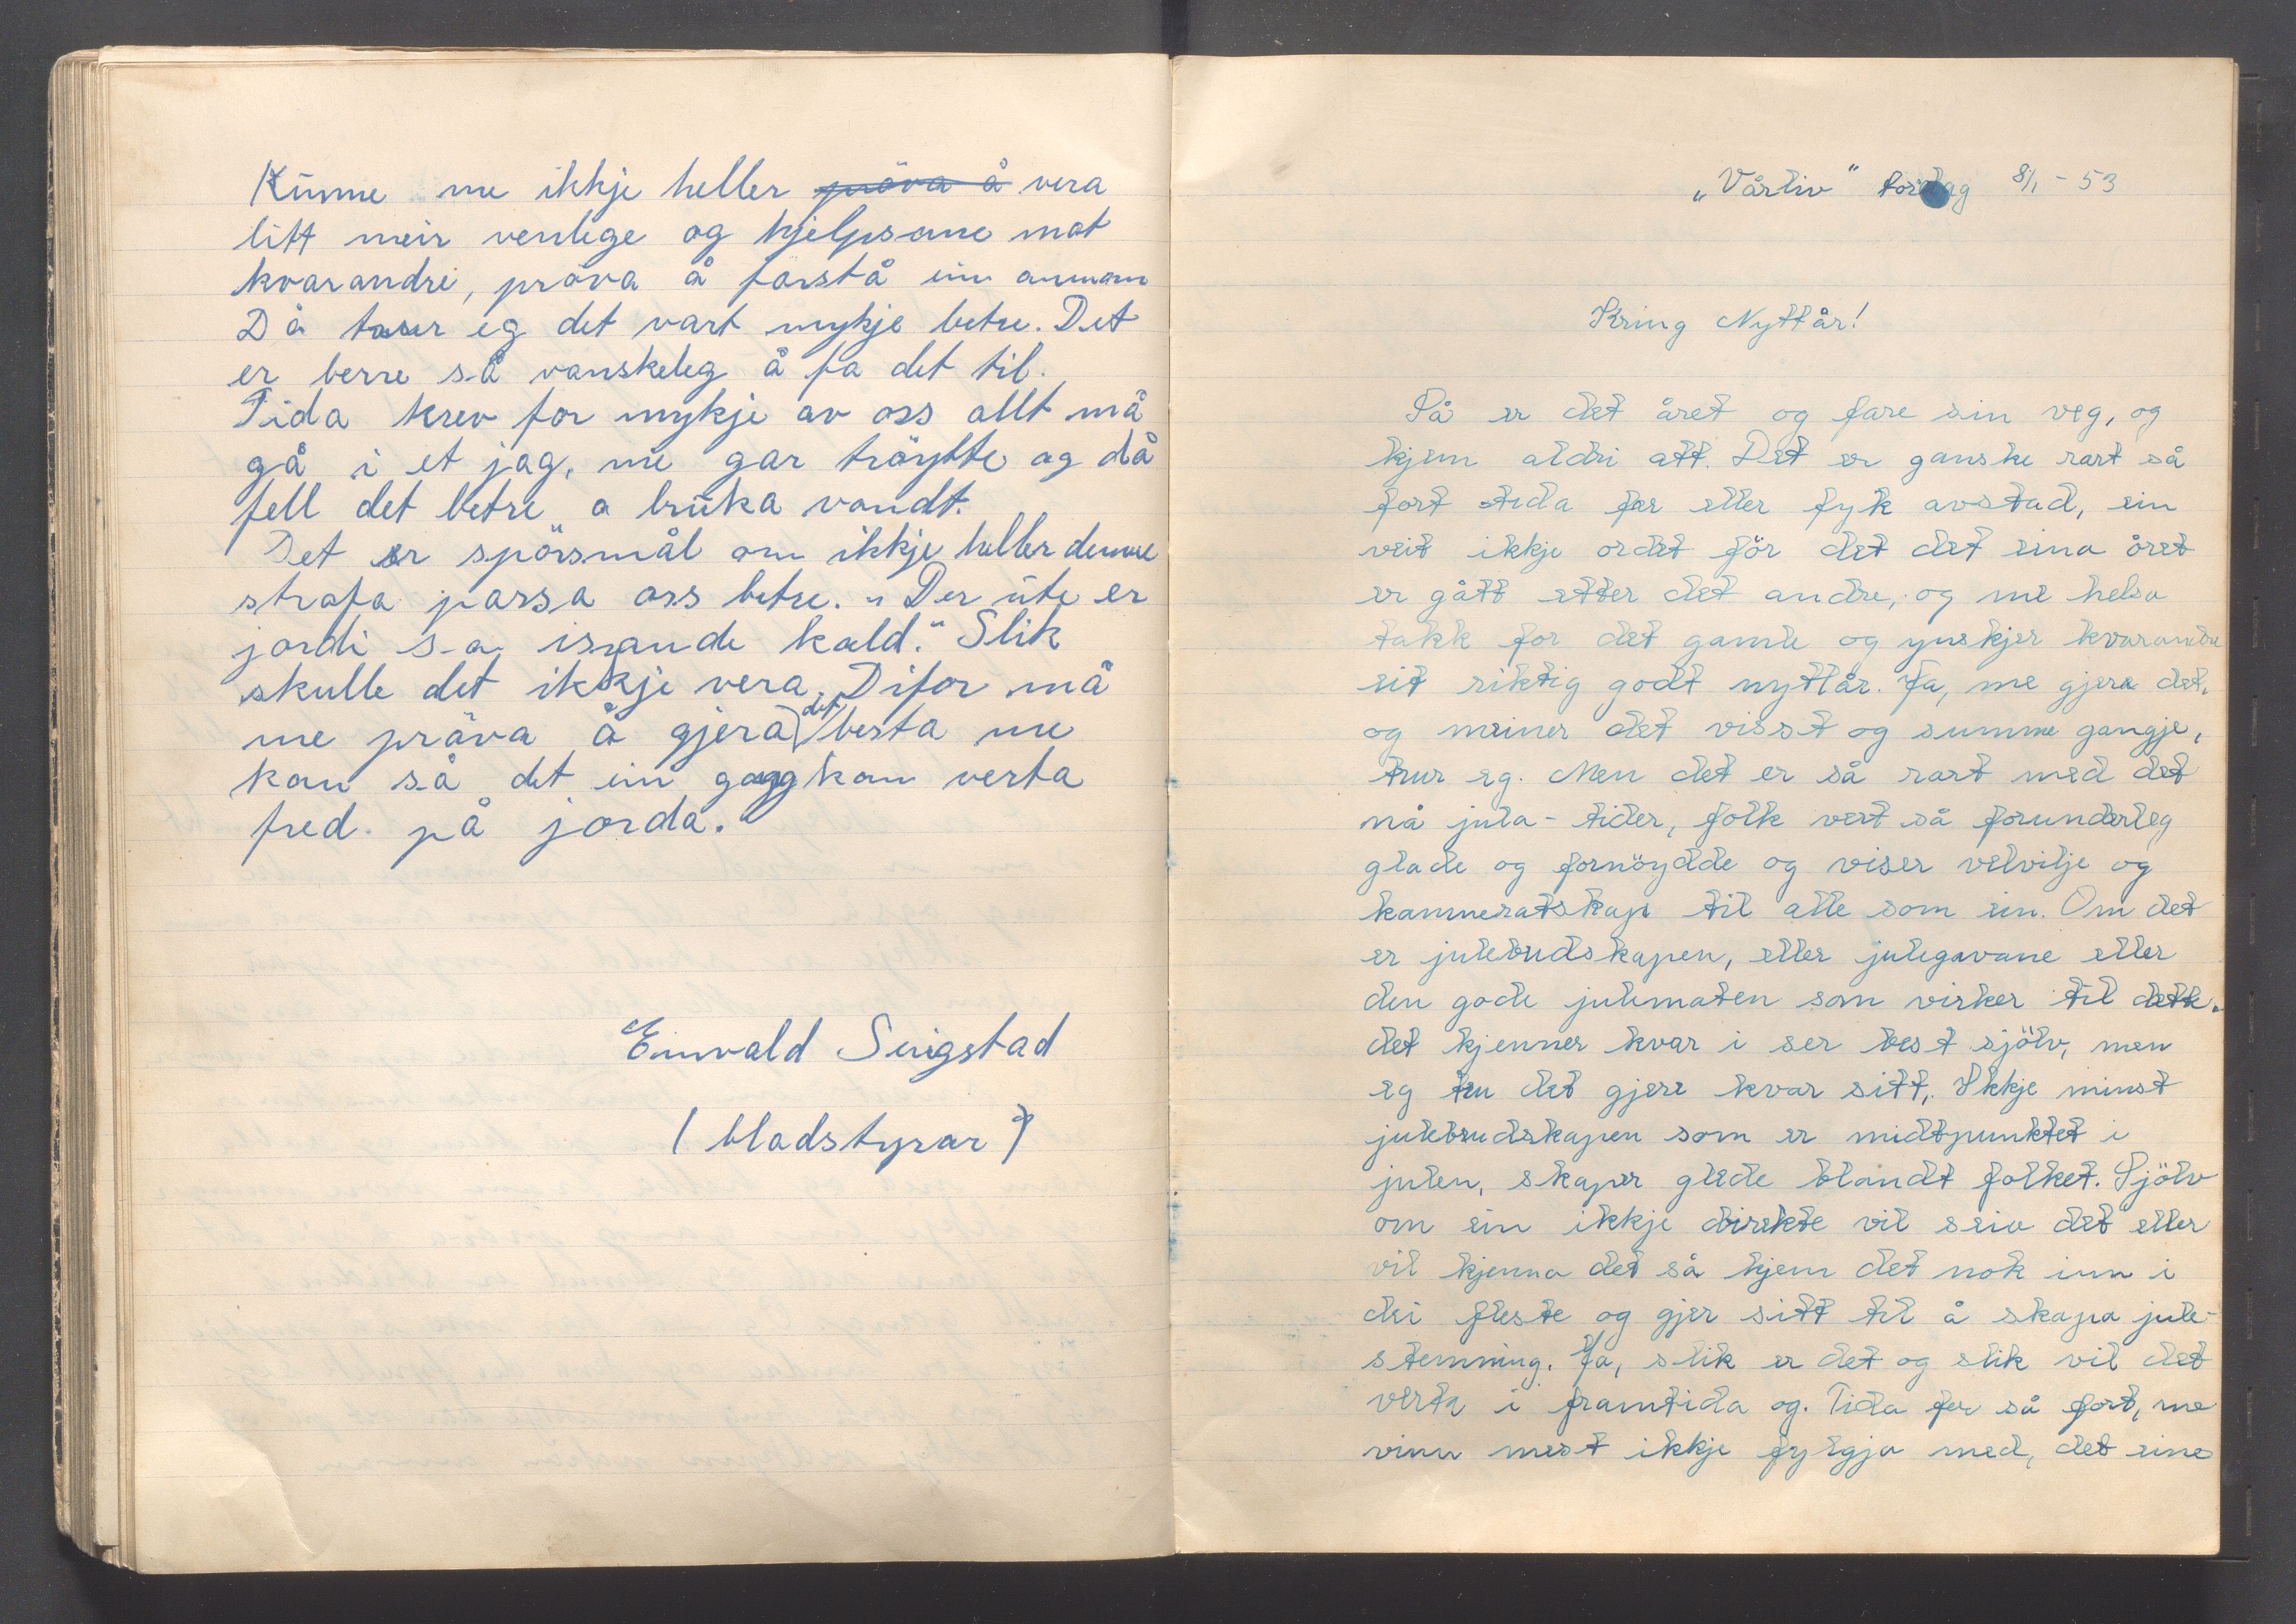 Kunne me ikkje heller pröva å vera
litt meir venlege og hjelpsame mot
kvarandre, pröva å forstå ein annan
Då truer eg det vart mykje betre. Det
er berre så vanskeleg å fa det til.
Tida krev for mykje av oss allt må
gå i et jag, me gar tröytte og då
fell det betre a bruka vondt.
Det er spörsmål om ikkje heller denne
strofa passa oss betre. „Der ute er
jordi so isande kald." Slik
skulle det ikkje vera. Difor må
me pröva å gjera det besta me
kan så det ein gagg kan verta
fred på jorda.
Einvald Seigstad
(bladstyrar)
„Vårliv" torsdag 8/1 - 53
Kring Nyttår!
Så er det året og fare sin veg, og
kjem aldri att. Det er ganske rart så
fort tida fer eller fyk avstad, ein
veit ikkje ordet för det det eina året
er gått etter det andre, og me helsa
takk for det gamle og ynskjer kvarandre
eit riktig godt nyttår. Ja, me gjera det,
og meiner det visst og summe gangje,
trur eg. Men det er så rart med det
nå jula-tider, folk vert så forunderleg
glade og fornöydde og viser velvilje og
kammeratskap til alle som ein. Om det
er julebudskapen, eller julegavane eller
den gode julematen som virker til dette.
det kjenner kvar i ser best sjölv, men
eg tru det gjere kvar sitt, Ikkje minst
julebudskapen som er midtpunktet i
julen, skaper glede blandt folket. Sjölv
om ein ikkje direkte vil seia det eller
vil kjenna det så kjem det nok inn i
dei fleste og gjer sitt til å skapa jule-
stemning. Ja, slik er det og slik vil det
verta i framtida og. Tida fer så fort, me
vinn mest ikkje fylgja med, det eine